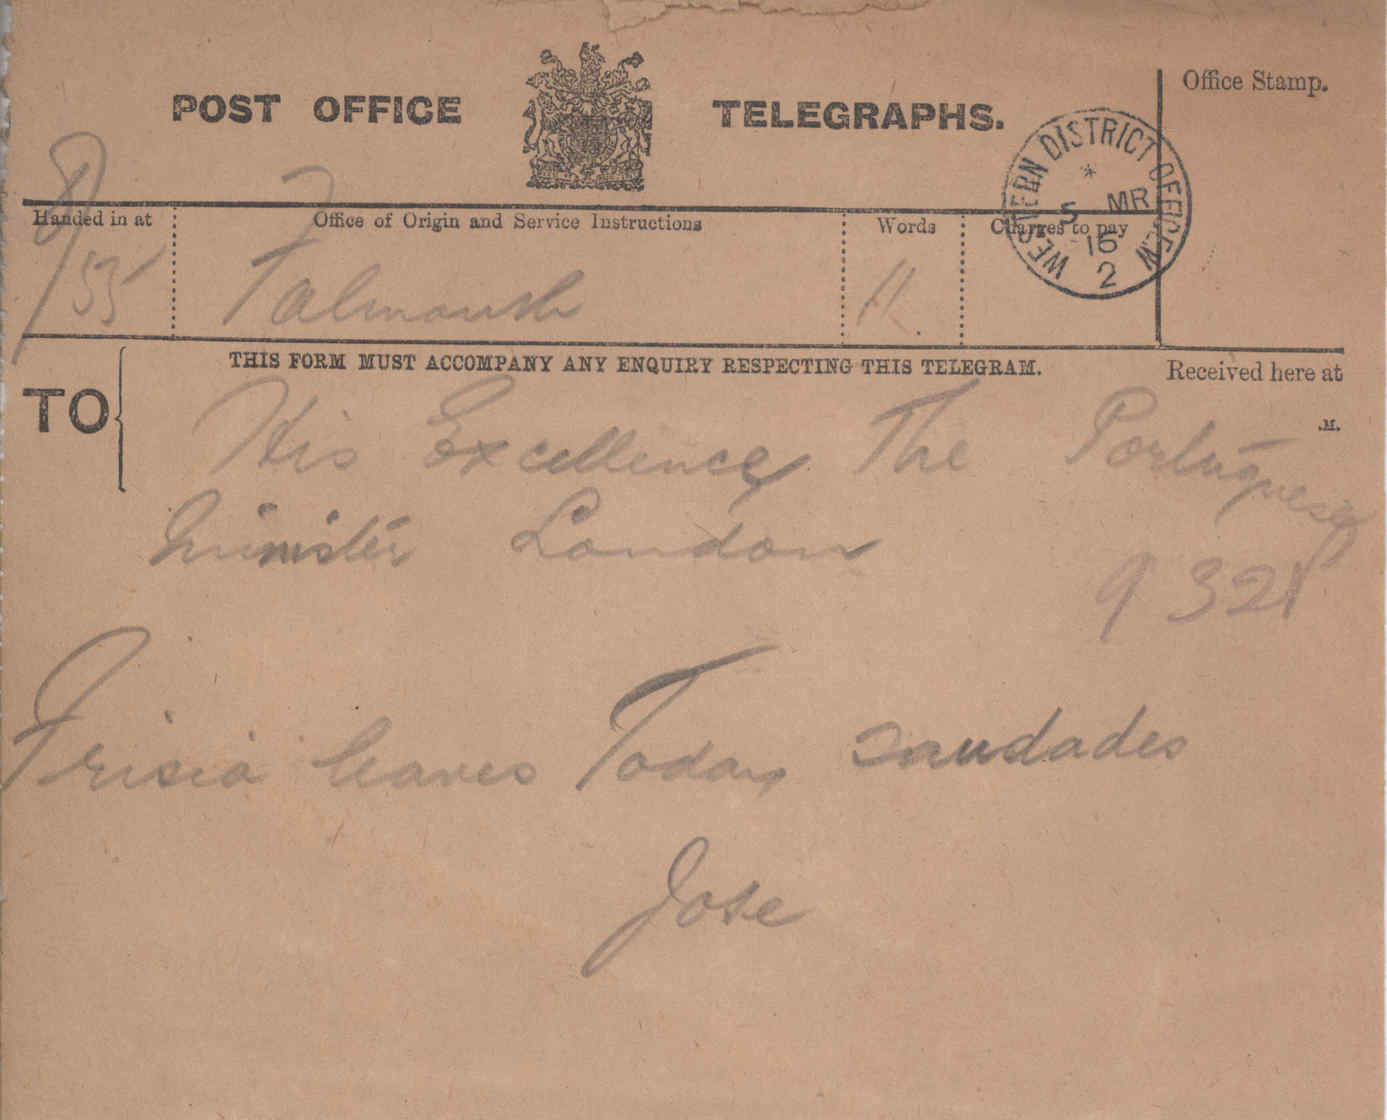 POST OFFICE TELEGRAPHS.
Office Stamp.
WESTERN DISTRICT OFFICE W
* 5 MR 15 2
Handed in at
Office of Origin and Service Instructions
Words
Charges to pay
55
Falmouth
11
THIS FORM MUST ACCOMPANY ANY ENQUIRY RESPECTING THIS TELEGRAM.
Received here at
.M.
TO
His Excellency The Portuguese
Minister London
9 32
Frisia leaves Today saudades
Jose